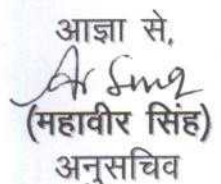 आज्ञा से,
(महावीर सिंह)
अनुसचिव